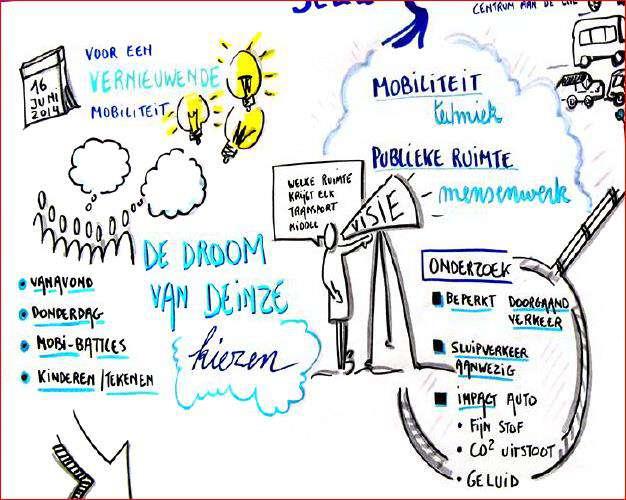 CENTRUM AAN DE
16
JUNI
2014
VOOR EEN
VERNIEUWENDE
MOBILITEIT
MOBILITEIT
techniek
PUBLIEKE RUIMTE
mensenwerk
WELKE RUIMTE
KRIJGT ELK
TRANSPORT
MIDDEL
VISIE
DE DROOM
VAN DEINZE
kiezen
VANAVOND
DONDERDAG
MOBI-BATTLES
KINDEREN / TEKENEN
ONDERZOEK
BEPERKT DOORGAAND
VERKEER
SLUIPVERKEER
AANWEZIG
IMPACT AUTO
• FIJN STOF
• CO² UITSTOOT
• GELUID